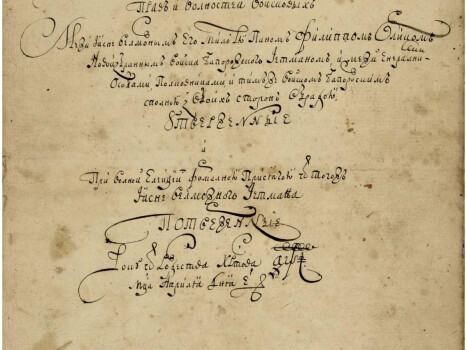 Правъ и волностей войсковыхъ
Межи Ясне велможнымъ Его Млстю Паномъ Филиппомъ Орликомъ
Новоизбраннымъ войска Запорозского Гетманомъ, и межи Енералними
Особами, Полковниками и тимъ же войскомъ Запорозскимъ
сполною з обоихъ сторонъ обрадою,
утвержение
и
При волной Елекции формалною Присягою от тогожъ
Ясне велможного Гетмана
потверженние
Року от Рождества Христова аѱі
мца Априля дня е